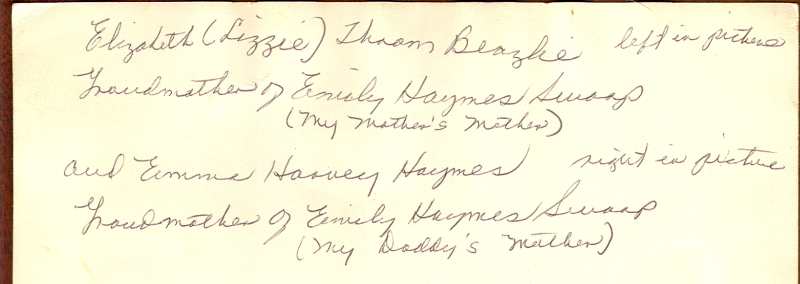 Elizabeth (Lizzie) Thoam Beazlie left in picture
Grandmother of Emily Haymes Swoap
(My Mother's Mother)
and Emma Harvey Haymes right in picture
Grandmother of Emily Haymes Swoap
(My Daddy's Mother)